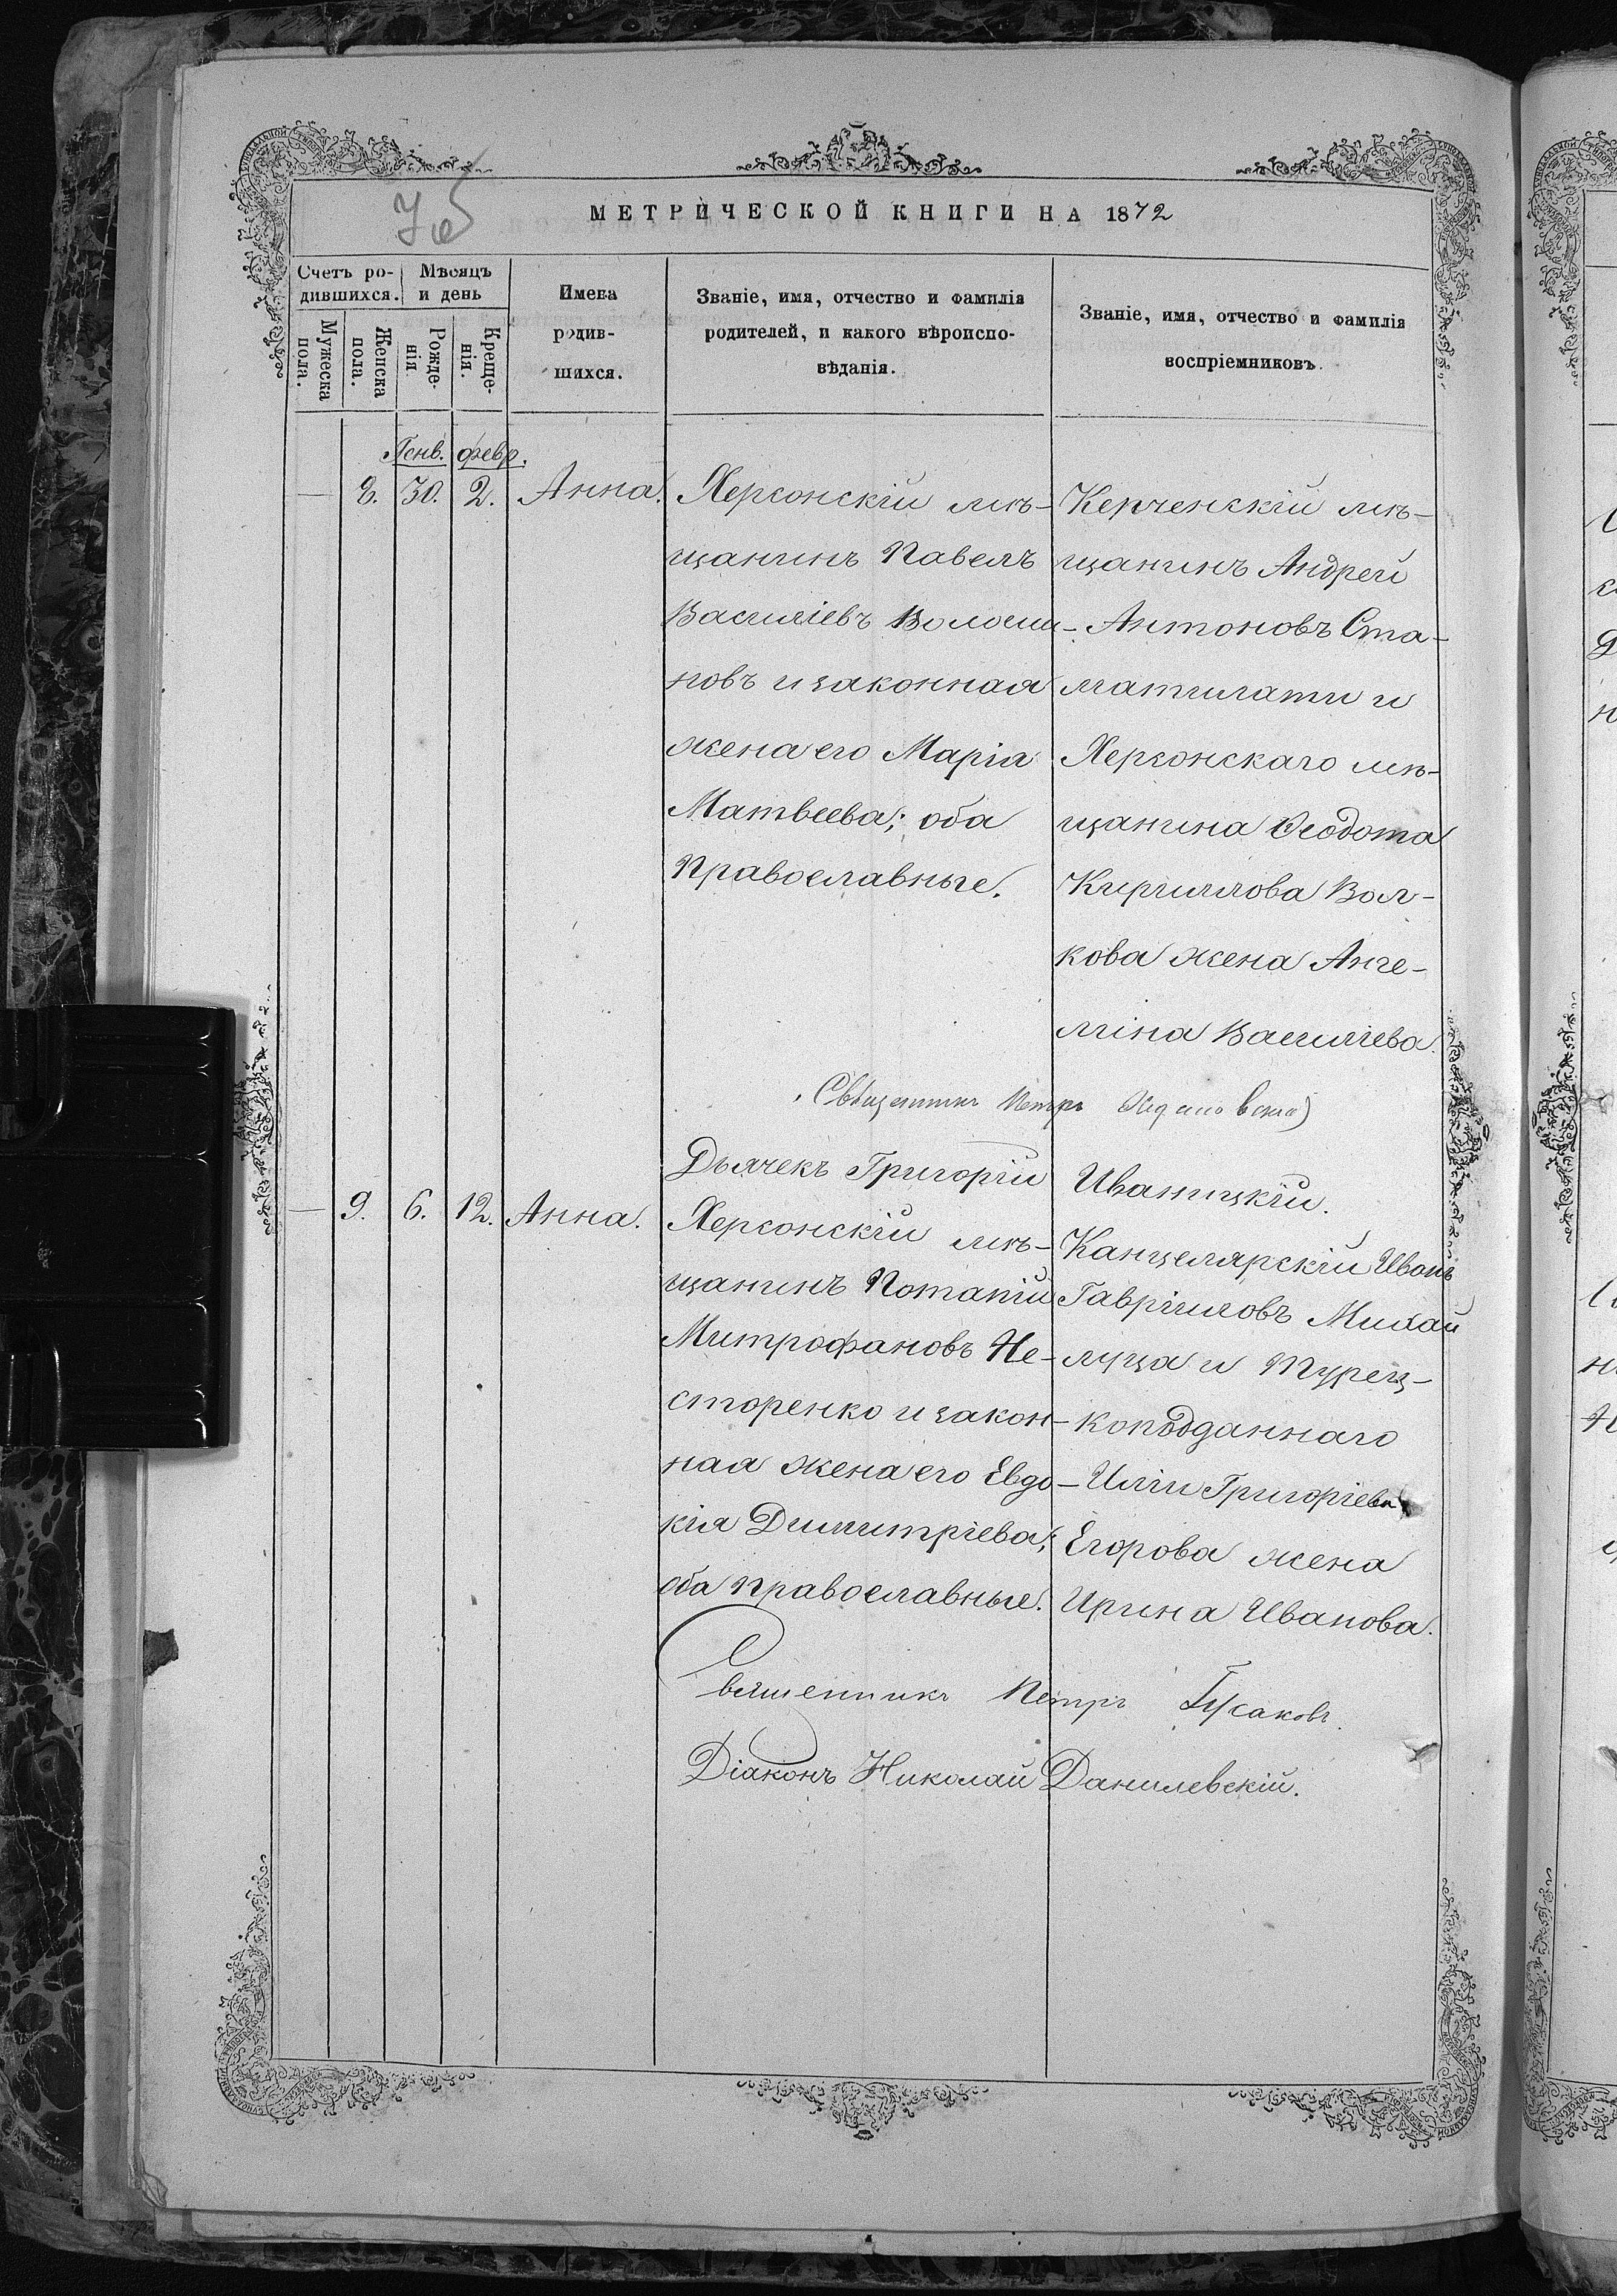 МЕТРИЧЕСКОЙ КНИГИ НА 1872
Счетъ ро-
дившихся.
Мѣсяцъ
и день
Мужеска
пола.
Женска
пола.
Рожде-
нія
Креще-
нія.
Имена
родив-
шихся.
Званіе, имя, отчество и фамилія
родителей, и какого вѣроиспо-
вѣданія.
Званіе, имя, отчество и фамилія
воспріемниковъ.
Генв. февр.
— 8. 30. 2. Анна.
Херсонскій мѣ-
щанинъ Павелъ
Василіевъ Волоши-
новъ и законная
жена его Марія
Матвеева; оба
Православные.
Керченскій мѣ-
щанинъ Андрей
Антоновъ Ста-
матилати и
Херсонскаго мѣ-
щанина Ѳеодота
Кириллова Вол-
кова жена Анге-
лина Василіева.
Священникъ Петръ
Дьячекъ Григорій Иваницкій.
— 9. 6. 12. Анна.
Херсонскій мѣ-
щанинъ Потапій
Митрофановъ Не-
сторенко и закон-
ная жена его Евдо-
кія Димитріева;
оба православные.
Канцелярскій Иванъ
Гавріиловъ Михай
луца и Турец-
коподданнаго
Иліи Григоріева
Егорова жена
Ирина Иванова.
Священникъ Петръ Гусаковъ.
Діаконъ Николай Данилевскій.